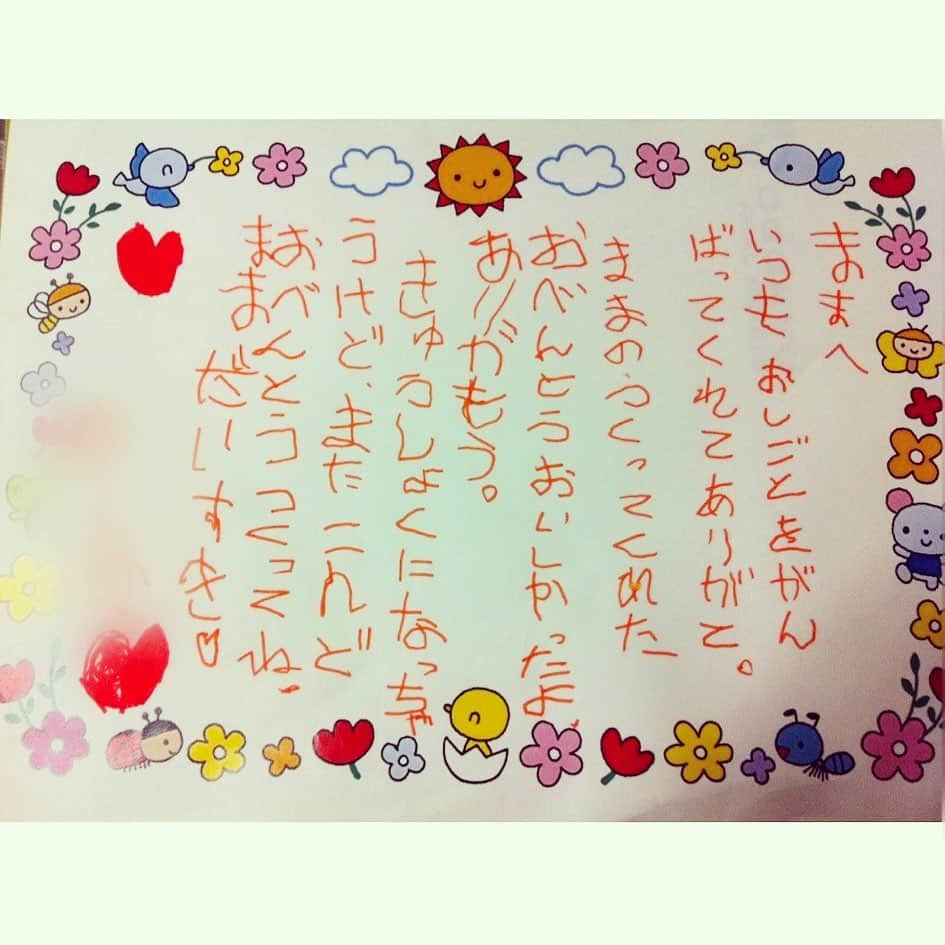 ままへ
いつもおしごとをがん
ばってくれてありがと。
ままのつくってくれた
おべんとうおいしかったよ、
ありがもう。
きゅうしょくになっちゃ
うけど、またこんど
おべんとうつくってね、
まま だいすき♡